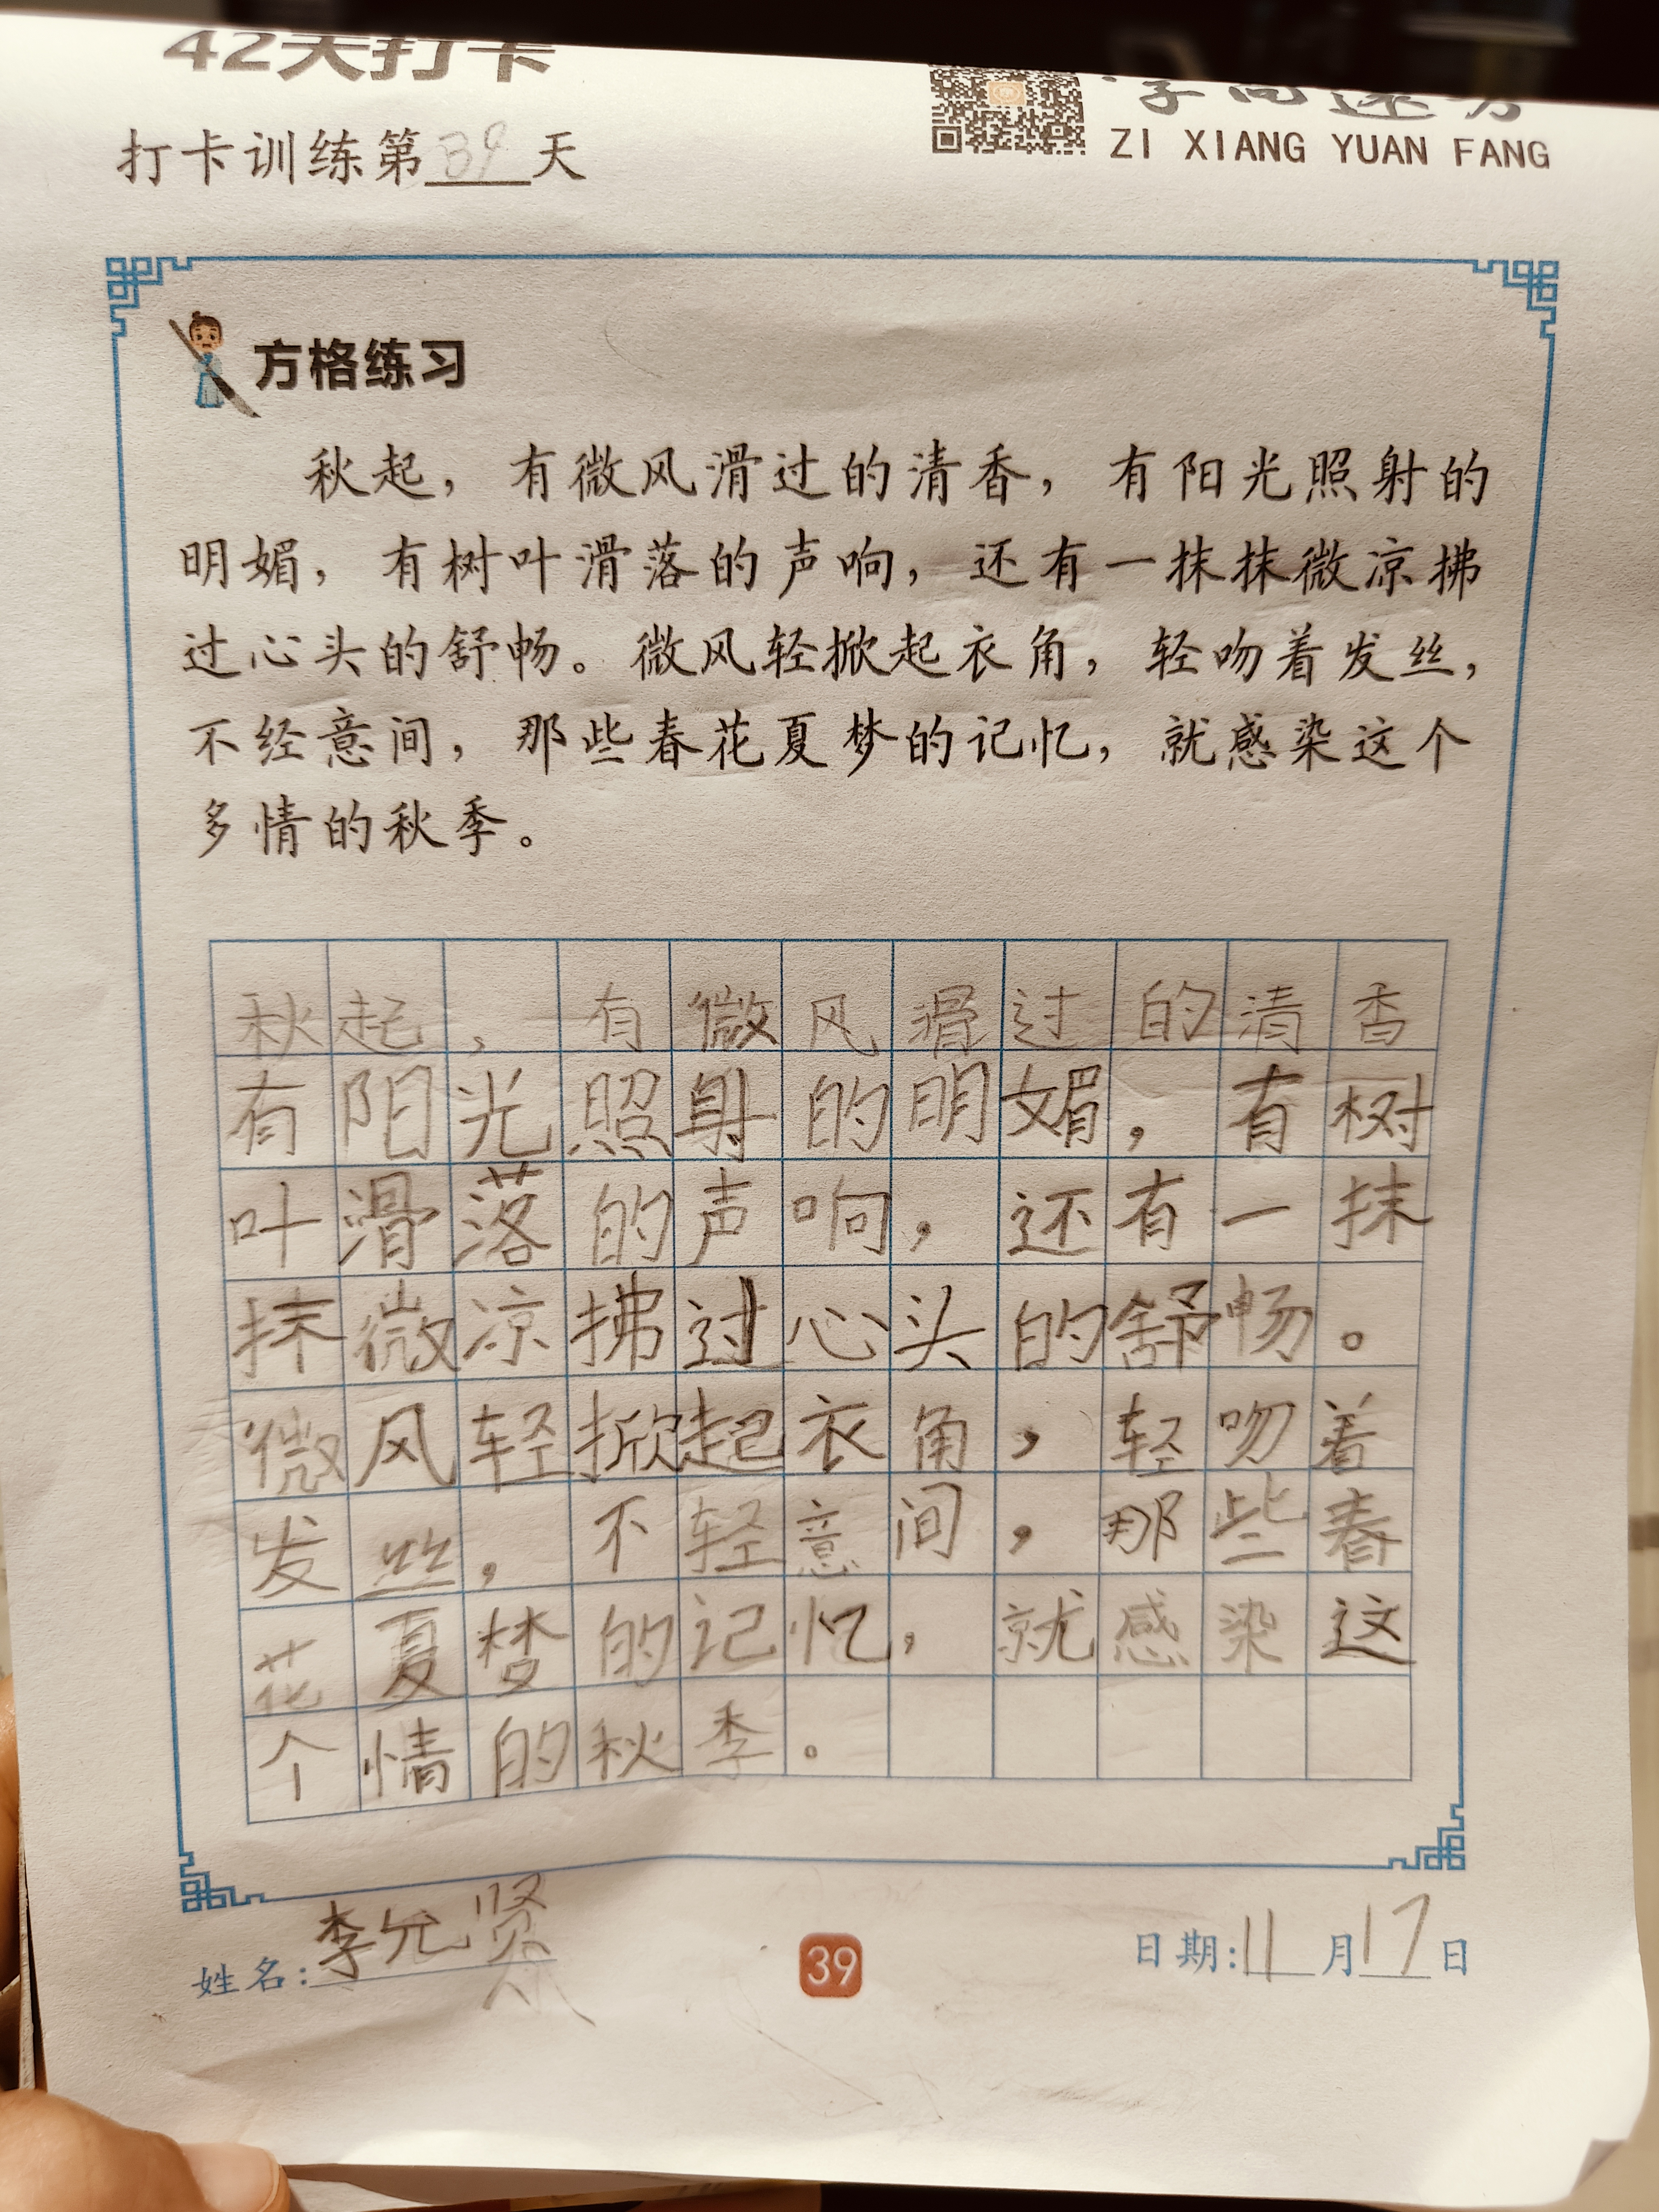 42天打卡
字向远方
ZI XIANG YUAN FANG
打卡训练第39天
方格练习
秋起，有微风滑过的清香，有阳光照射的
明媚，有树叶滑落的声响，还有一抹抹微凉拂
过心头的舒畅。微风轻掀起衣角，轻吻着发丝，
不经意间，那些春花夏梦的记忆，就感染这个
多情的秋季。
秋起，有微风滑过的清香
有阳光照射的明媚，有树
叶滑落的声响，还有一抹
抹微凉拂过心头的舒畅。
微风轻掀起衣角，轻吻着
发丝，不轻意间，那些春
花夏梦的记忆，就感染这
个情的秋季。
姓名：李允贤
39
日期：11月17日